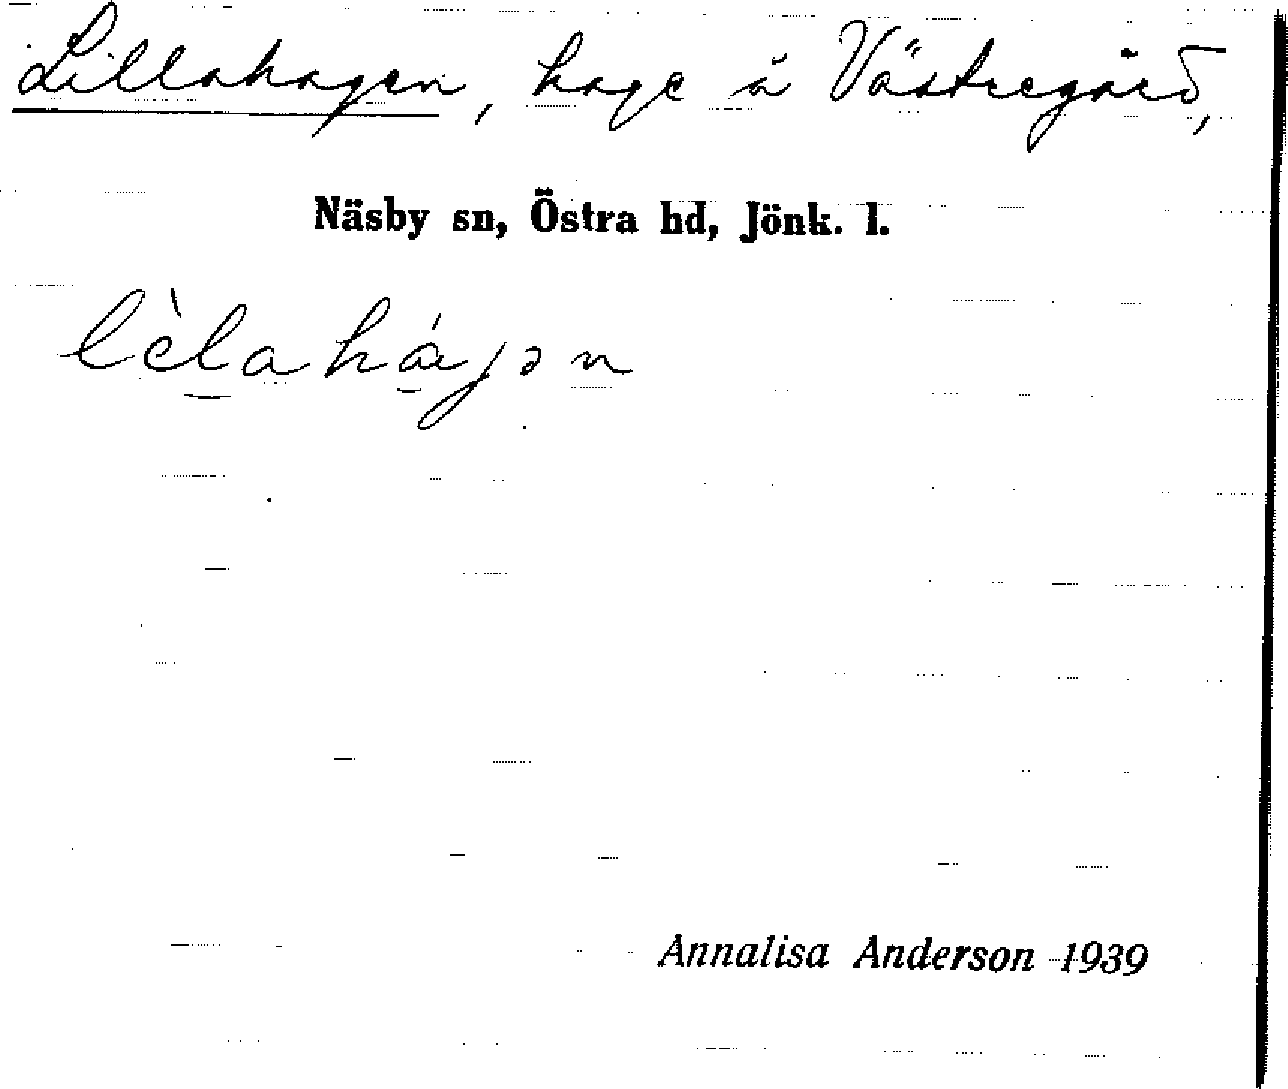 Lillahagen, hage å Västregård,
Näsby sn, Östra hd, Jönk. l.
lèlahájən
Annalisa Anderson 1939